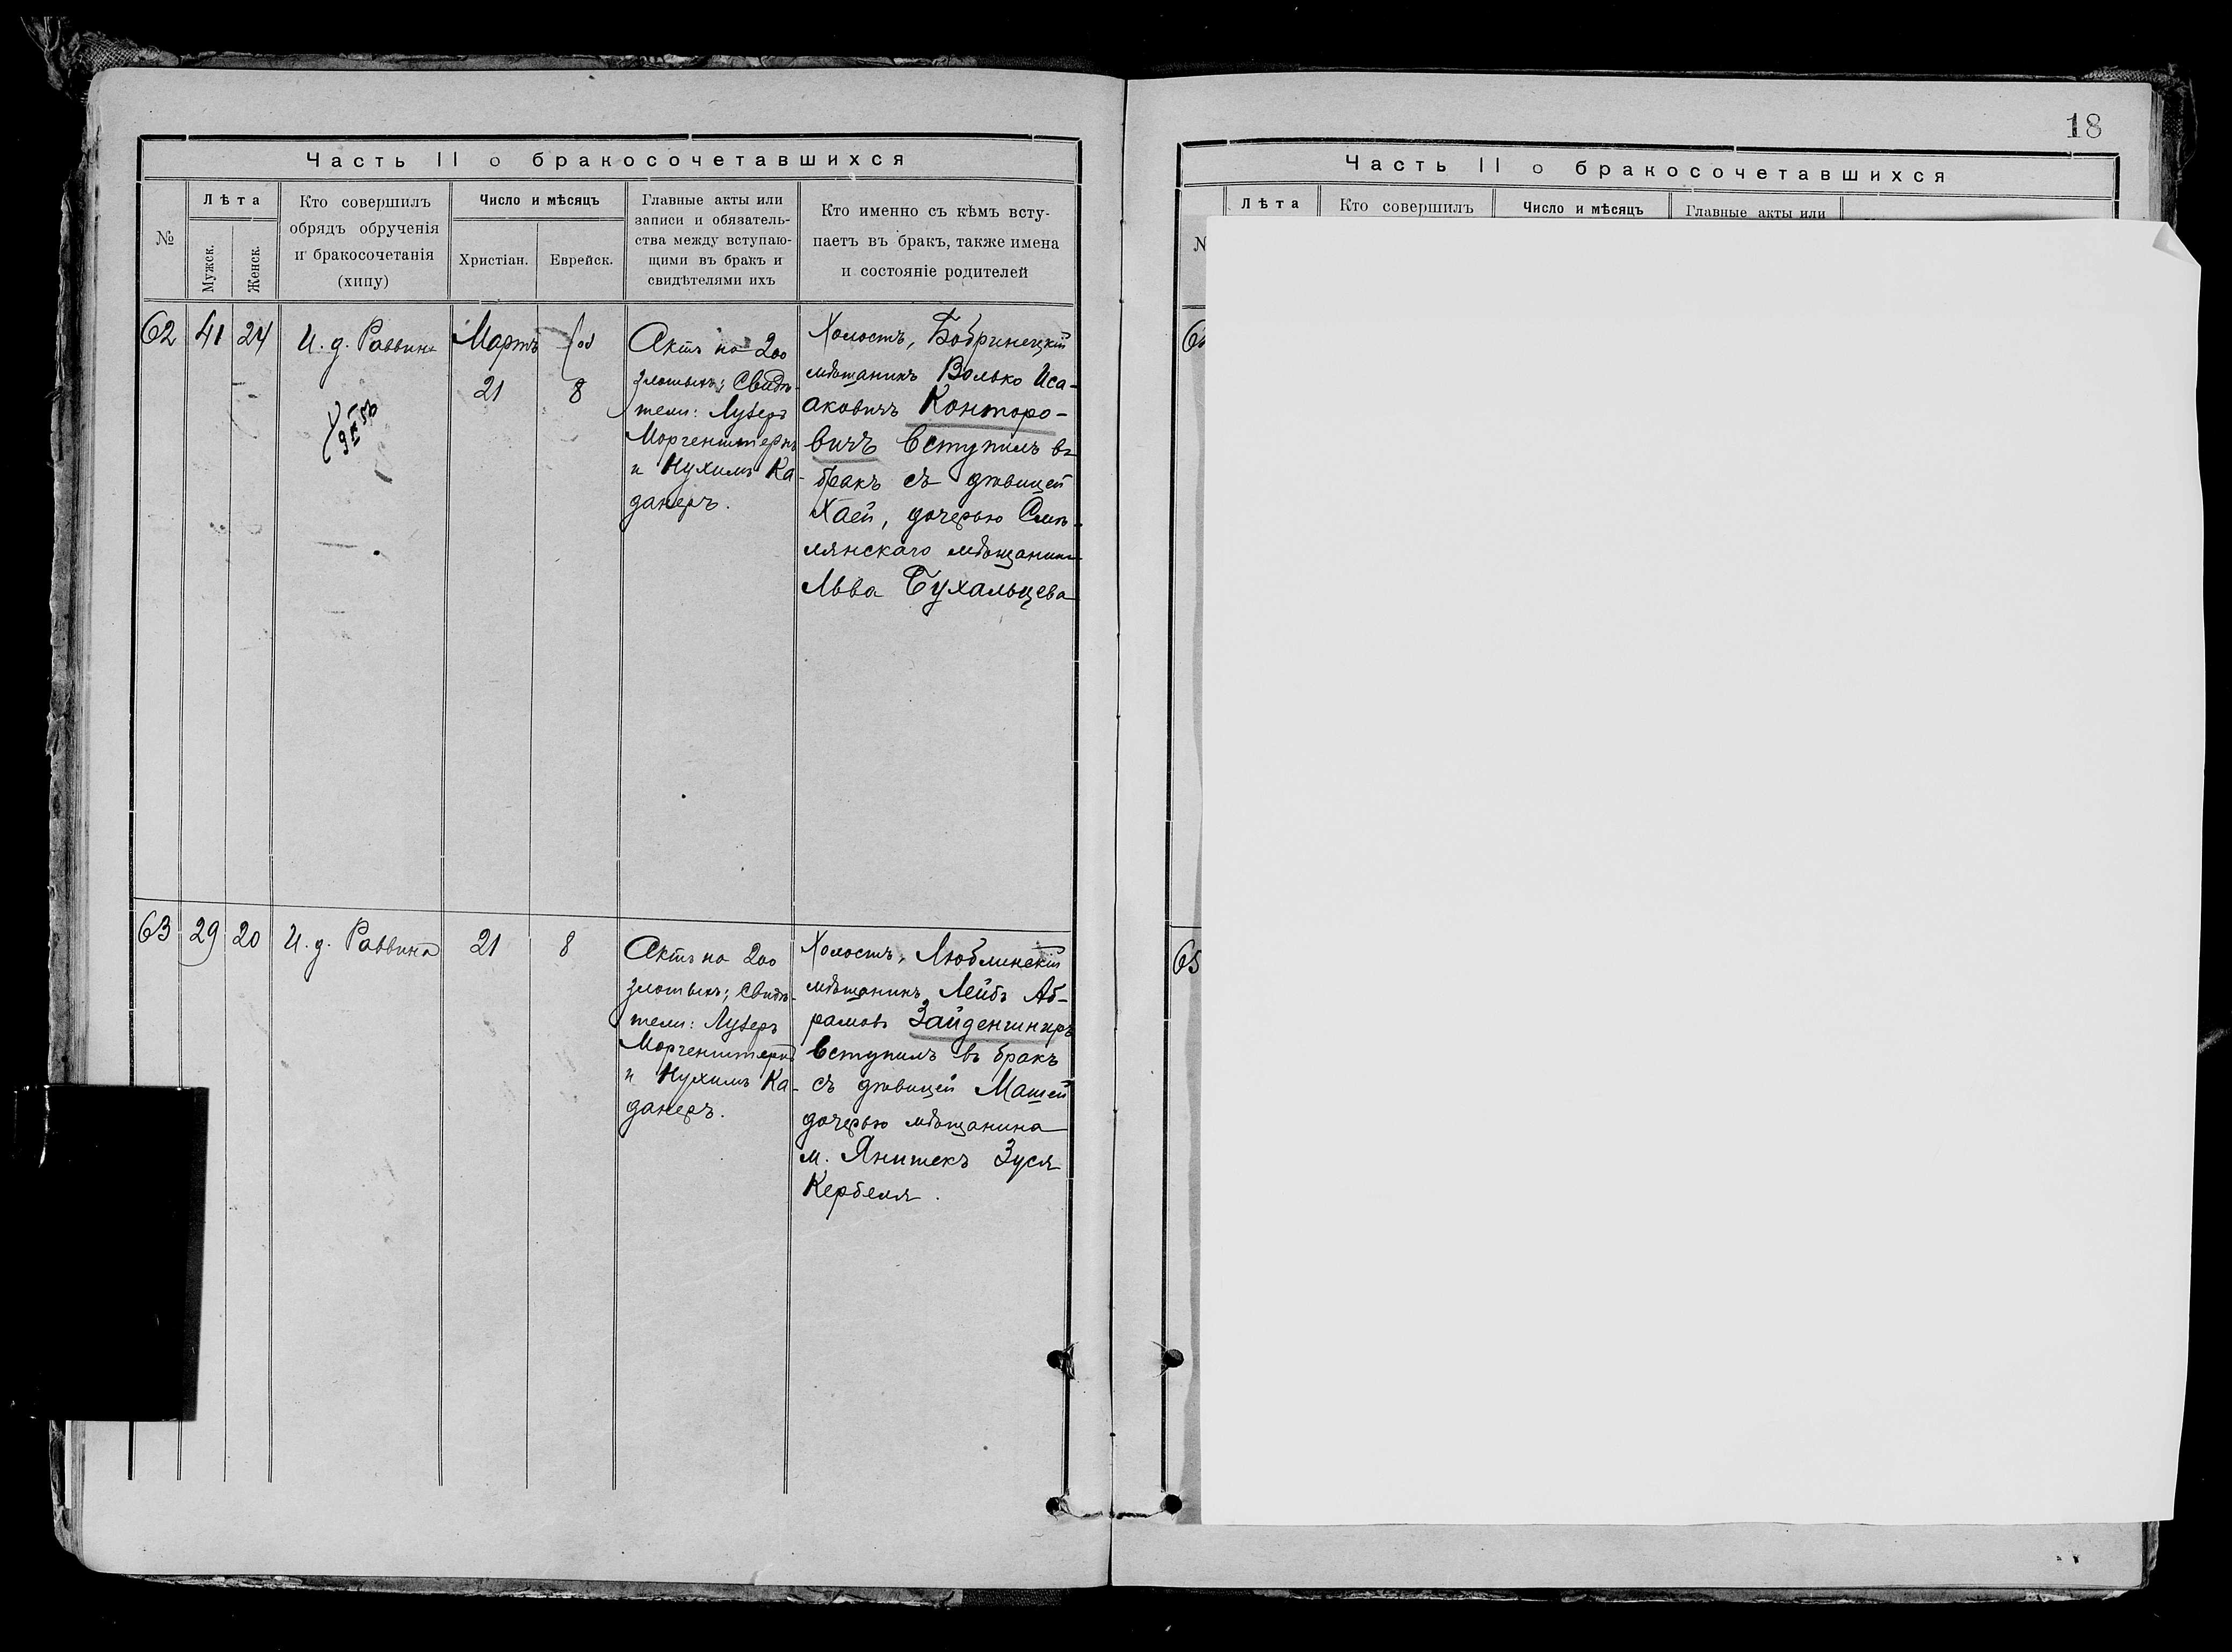 Часть II о бракосочетавшихся
№
Лѣта
Мужск.
Женск.
Кто совершилъ
обрядъ обрученія
и бракосочетанія
(хипу)
Число и мѣсяцъ
Христіан.
Еврейск.
Главные акты или
записи и обязатель-
ства между вступаю-
щими въ бракъ и
свидѣтелями ихъ
Кто именно съ кѣмъ всту-
паетъ въ бракъ, также имена
и состояніе родителей
62
41
24
И. д. Раввина
Мартъ
21
8
Актъ на 200
злотыхъ; Свидѣ-
тели: Лузеръ
Моргенштернъ
и Нухимъ Ка-
данеръ.
Холостъ, Бобринецкій
мѣщанинъ Волько Иса-
аковичъ Конторо-
вичъ вступилъ въ
бракъ съ дѣвицей
Хаей, дочерью Смѣ-
лянскаго мѣщанина
Льва Бухальцева
63
29
20
И. д. Раввина
21
8
Актъ на 200
злотыхъ; Свидѣ-
тели: Лузеръ
Моргенштернъ
и Нухимъ Ка-
данеръ.
Холостъ, Люблинскій
мѣщанинъ Лейбъ Аб-
рамовъ Зайденшниръ
вступилъ въ бракъ
съ дѣвицей Машей
дочерью мѣщанина
м. Янишекъ Зуся
Кербеля.
18
Часть II о бракосочетавшихся
Лѣта
Кто совершилъ
Число и мѣсяцъ
Главные акты или
65